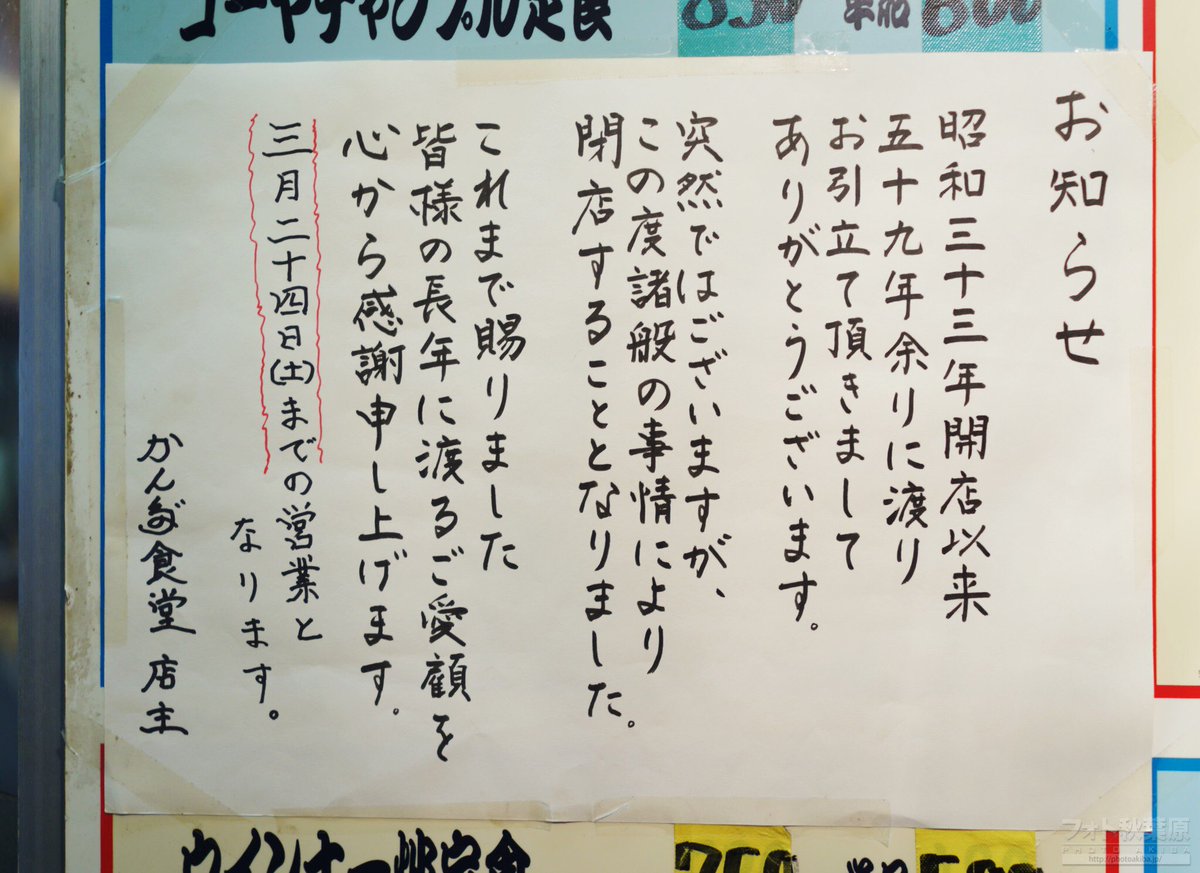 ゴーヤチャンプル定食 850 単品 600
お知らせ
昭和三十三年開店以来
五十九年余りに渡り
お引立て頂きまして
ありがとうございます。
突然ではございますが、
この度諸般の事情により
閉店することとなりました。
これまで賜りました
皆様の長年に渡るご愛顧を
心から感謝申し上げます。
三月二十四日(土)までの営業と
なります。
かんだ食堂 店主
ウインナー
750
フォト秋葉原
PHOTO AKIBA
http://photoakiba.jp/